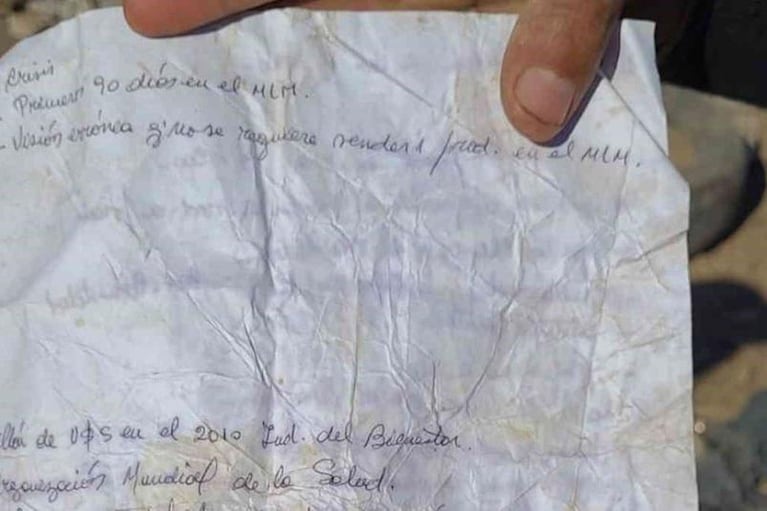 Crisis
- Primeros 90 días en el MLM.
- Visión errónea q' no se requiere vender prod. en el MLM.
de U$S en el 2010 Ind. del Bienestar.
Mundial de la Salud.